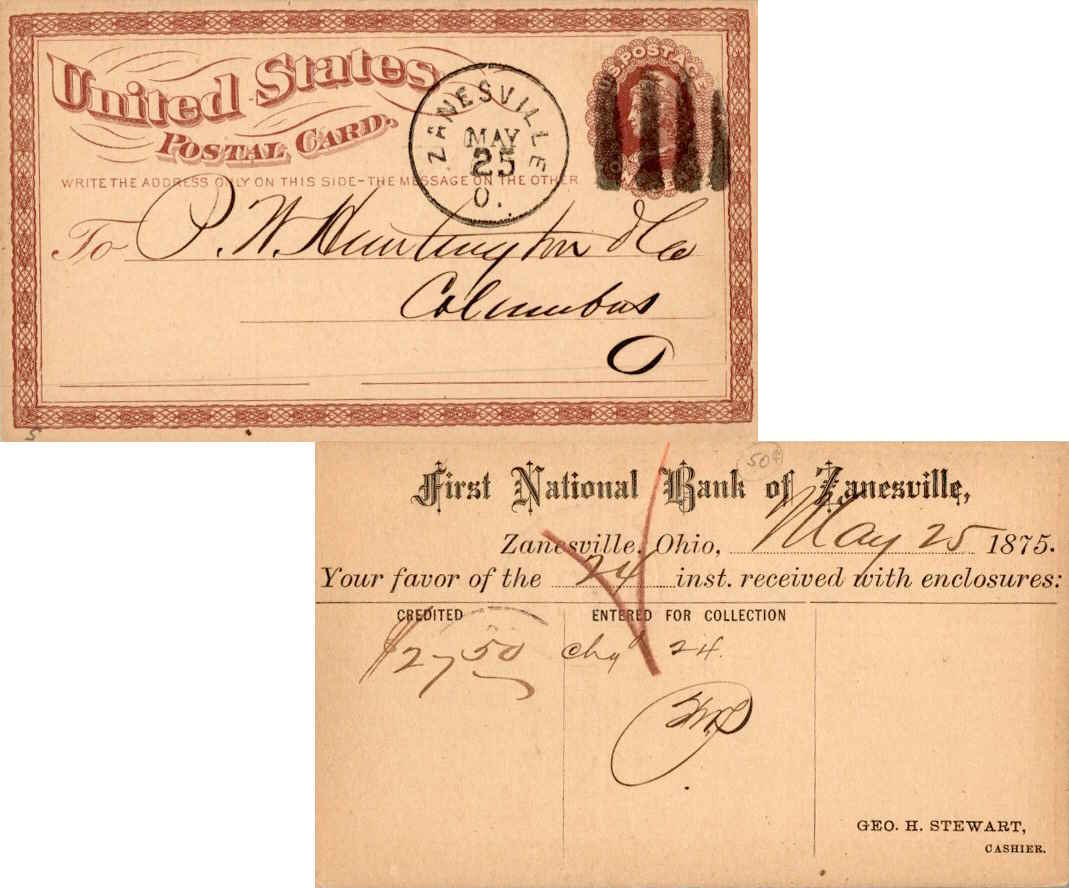 United States
POSTAL CARD.
U.S. POSTAGE
ZANESVILLE
MAY
25
O.
WRITE THE ADDRESS ONLY ON THIS SIDE - THE MESSAGE ON THE OTHER
To P. W. Huntington & Co
Columbus
O
5
50¢
First National Bank of Zanesville,
Zanesville, Ohio, May 25 1875.
Your favor of the 24 inst. received with enclosures:
CREDITED ENTERED FOR COLLECTION
$27 50 chg 24.
GEO. H. STEWART,
CASHIER.